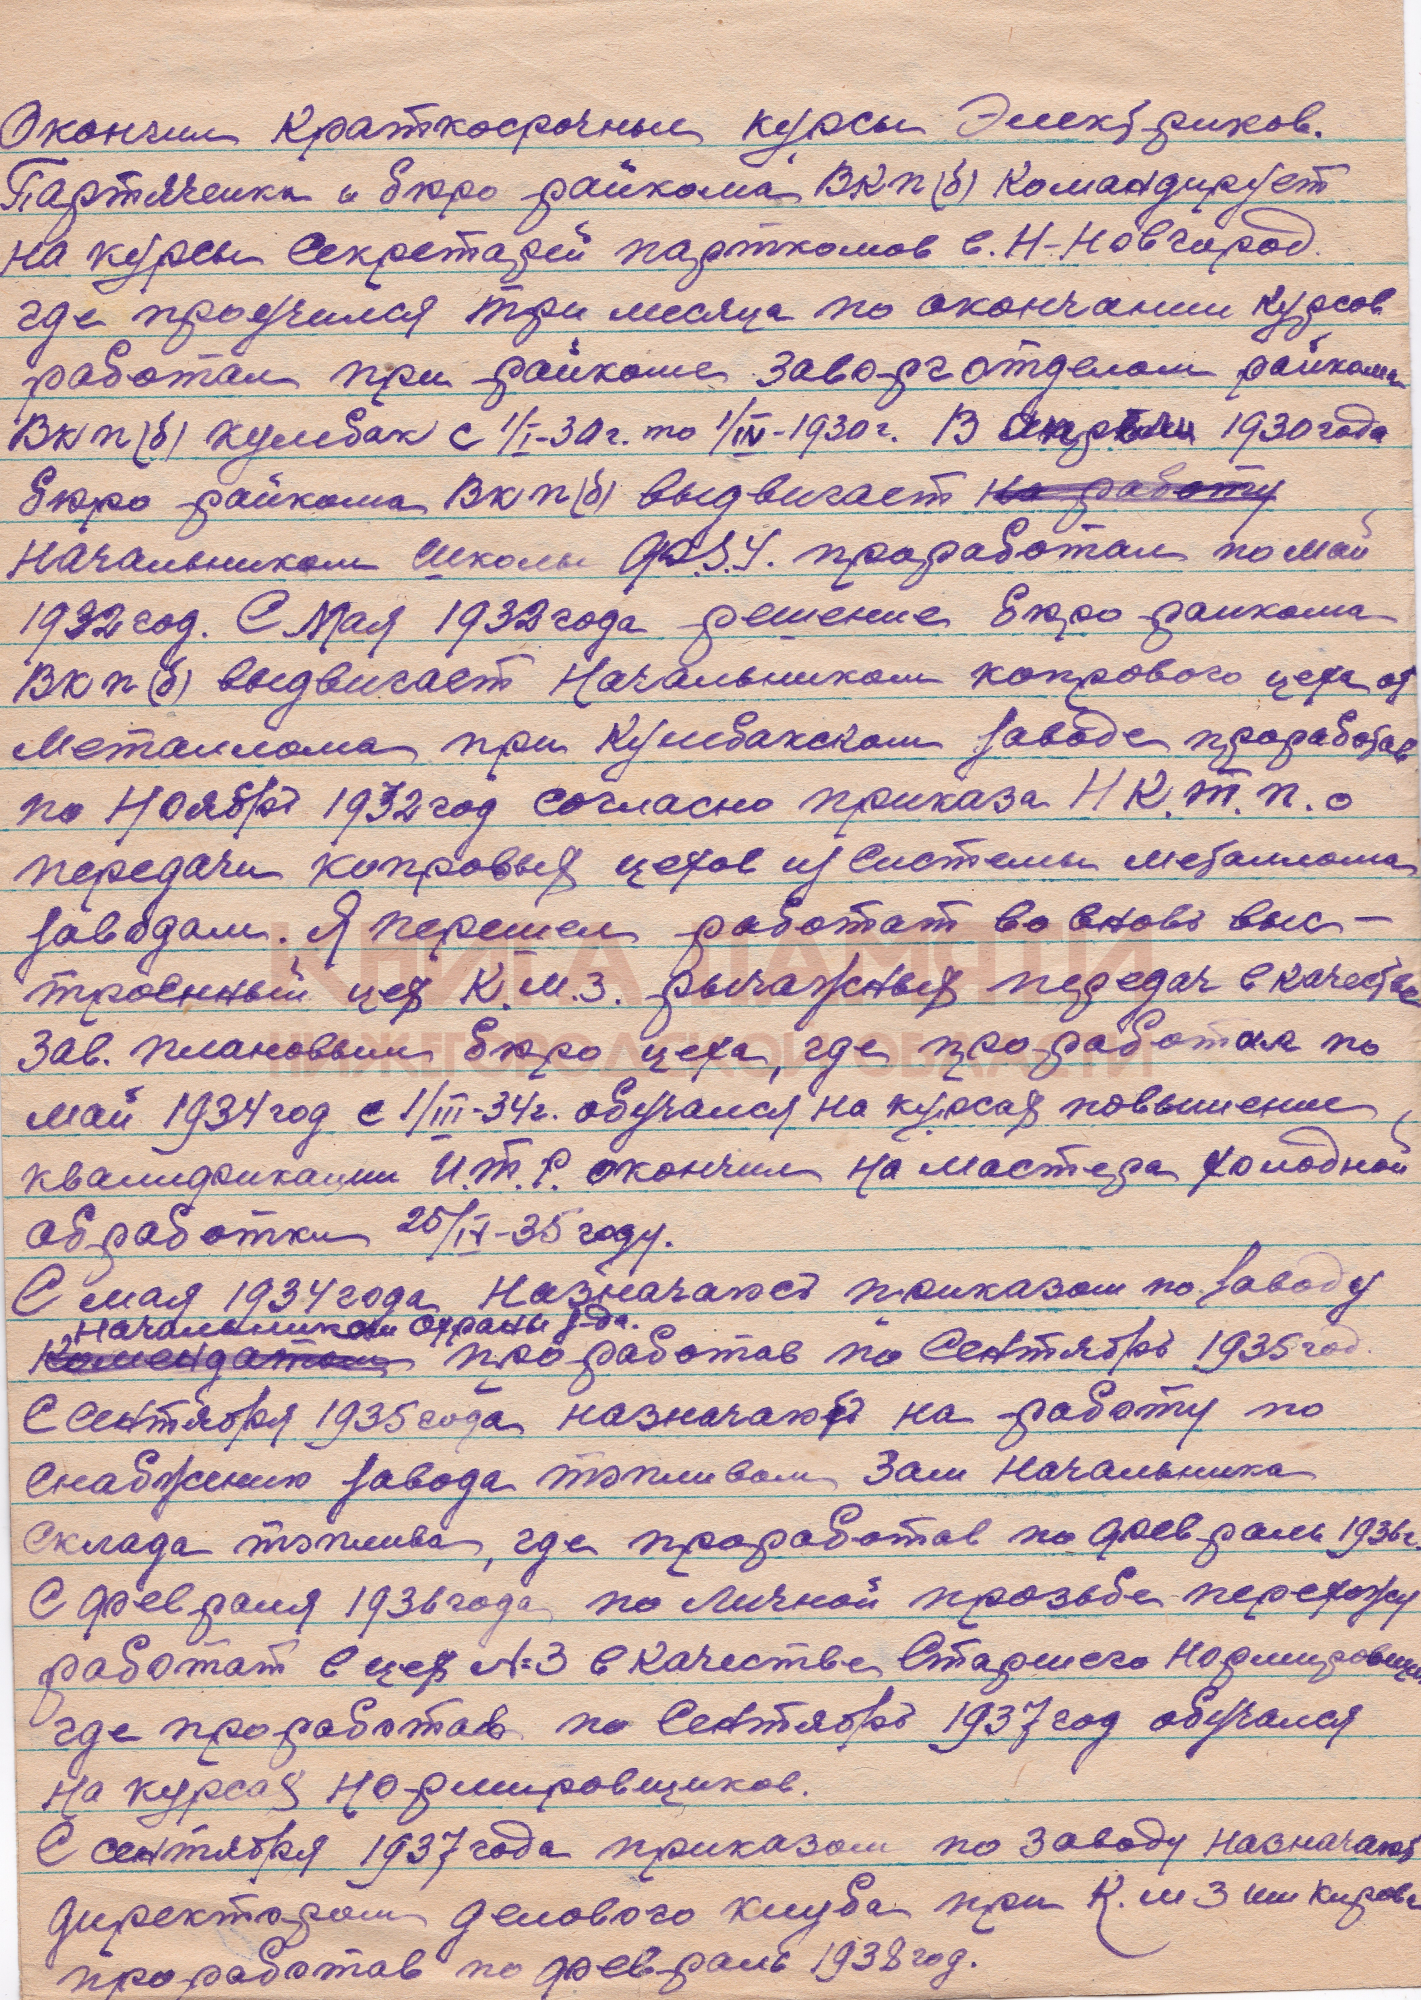 Окончил краткосрочные курсы Электриков.
Партячейка и бюро райкома ВКП(б) командирует
на курсы секретарей парткомов в. Н-Новгород.
где проучился три месяца по окончании курсов
работал при райкоме заворготделом райкома
ВКП(б) Кулебак с 1/I-30г. по 1/IV-1930г. В апреле 1930 года
бюро райкома ВКП(б) выдвигает на работу
начальником школы Ф.З.У. проработал по май
1932 год. С Мая 1932 года решение бюро раикома
ВКП(б) выдвигает Начальником копрового цеха от
Металлома при Кулебакском заводе проработав
по Ноябрь 1932 год согласно приказа Н.К.Т.П. о
передачи копровых цехов из системы металлома
заводам. Я перешел работат во вновь выс-
троенный цех К.М.З. рычажных передач в качестве
Зав. плановым бюро цеха, где проработал по
май 1934 год с 1/III-34г. обучался на курсах повышение
квалификации И.Т.Р. окончил на мастера холодной
обработки 25/IV-35 году.
С мая 1934 года Назначают приказом по заводу
Начальником охраны з-да.
Комендатом проработав по Сентябрь 1935 год.
С Сентября 1935 года назначают на работу по
снабжению завода топливом Зам Начальника
склада топлива, где проработав по февраль 1936г.
С февраля 1936 года по личной прозьбе перехожу
работат в цех №3 в качестве Старшего Нормировщика
где проработав по Сентябрь 1937 год обучался
на курсах нормировщиков.
С сентября 1937 года приказом по заводу назначают
директором делового клуба при К.М З им Кирова
проработав по февраль 1938 год.
КНИГА ПАМЯТИ
НИЖЕГОРОДСКОЙ ОБЛАСТИ